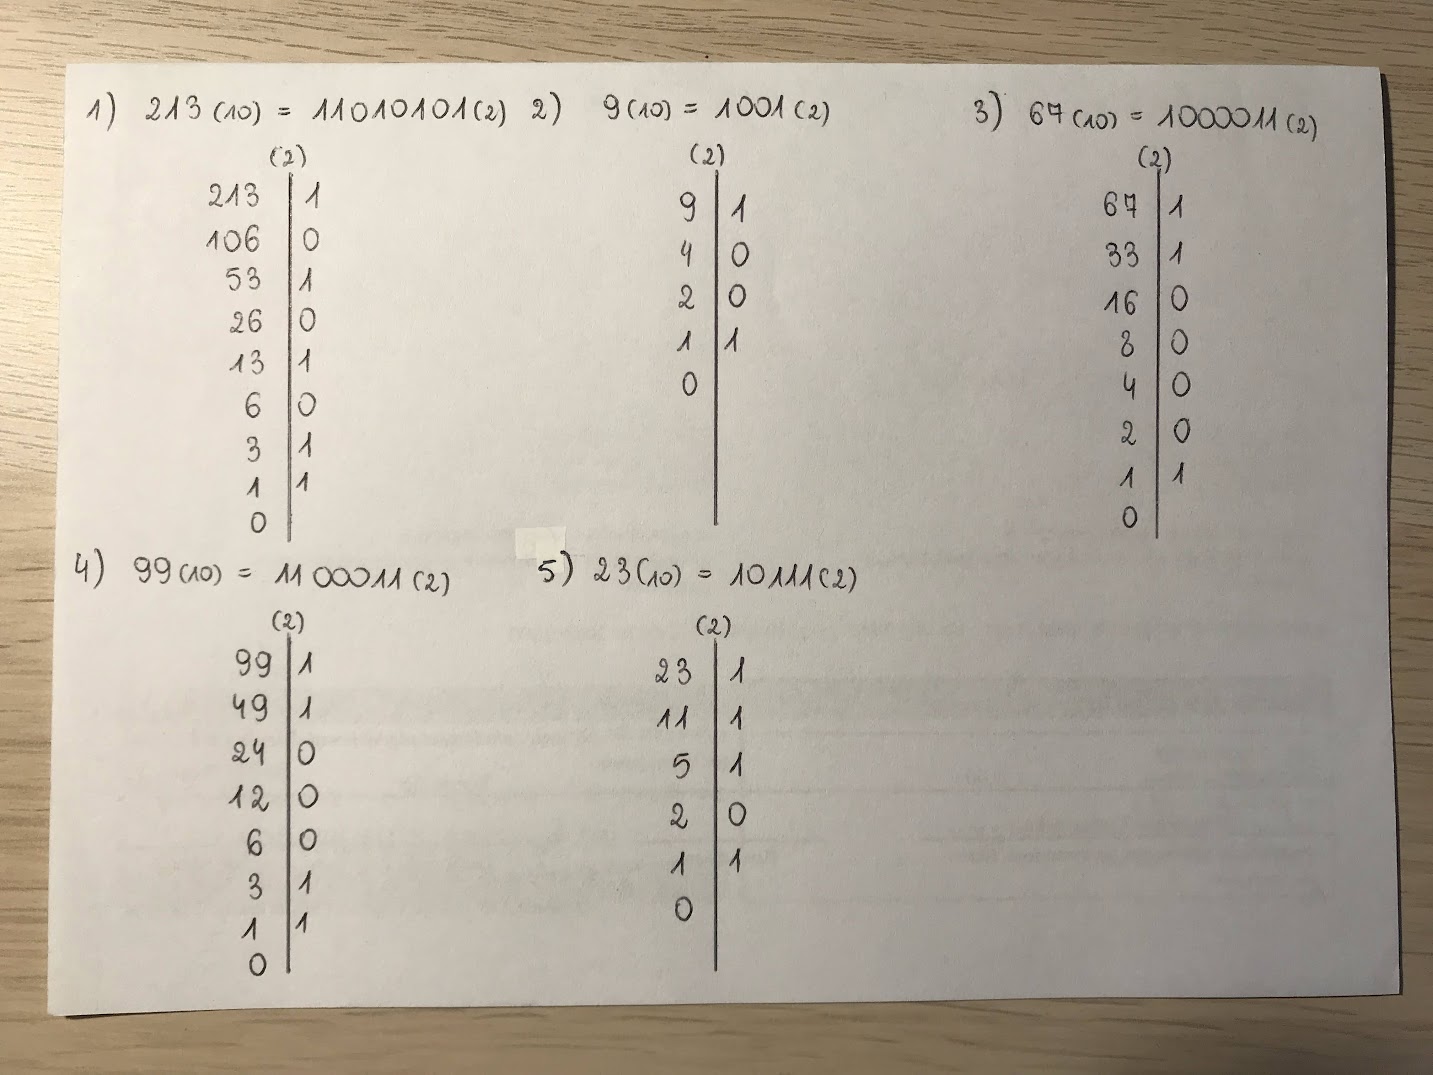 1) 213 (10) = 11010101 (2)
(2)
213 | 1
106 | 0
53 | 1
26 | 0
13 | 1
6 | 0
3 | 1
1 | 1
0 |
2) 9 (10) = 1001 (2)
(2)
9 | 1
4 | 0
2 | 0
1 | 1
0 |
3) 67 (10) = 1000011 (2)
(2)
67 | 1
33 | 1
16 | 0
8 | 0
4 | 0
2 | 0
1 | 1
0 |
4) 99 (10) = 1100011 (2)
(2)
99 | 1
49 | 1
24 | 0
12 | 0
6 | 0
3 | 1
1 | 1
0 |
5) 23 (10) = 10111 (2)
(2)
23 | 1
11 | 1
5 | 1
2 | 0
1 | 1
0 |